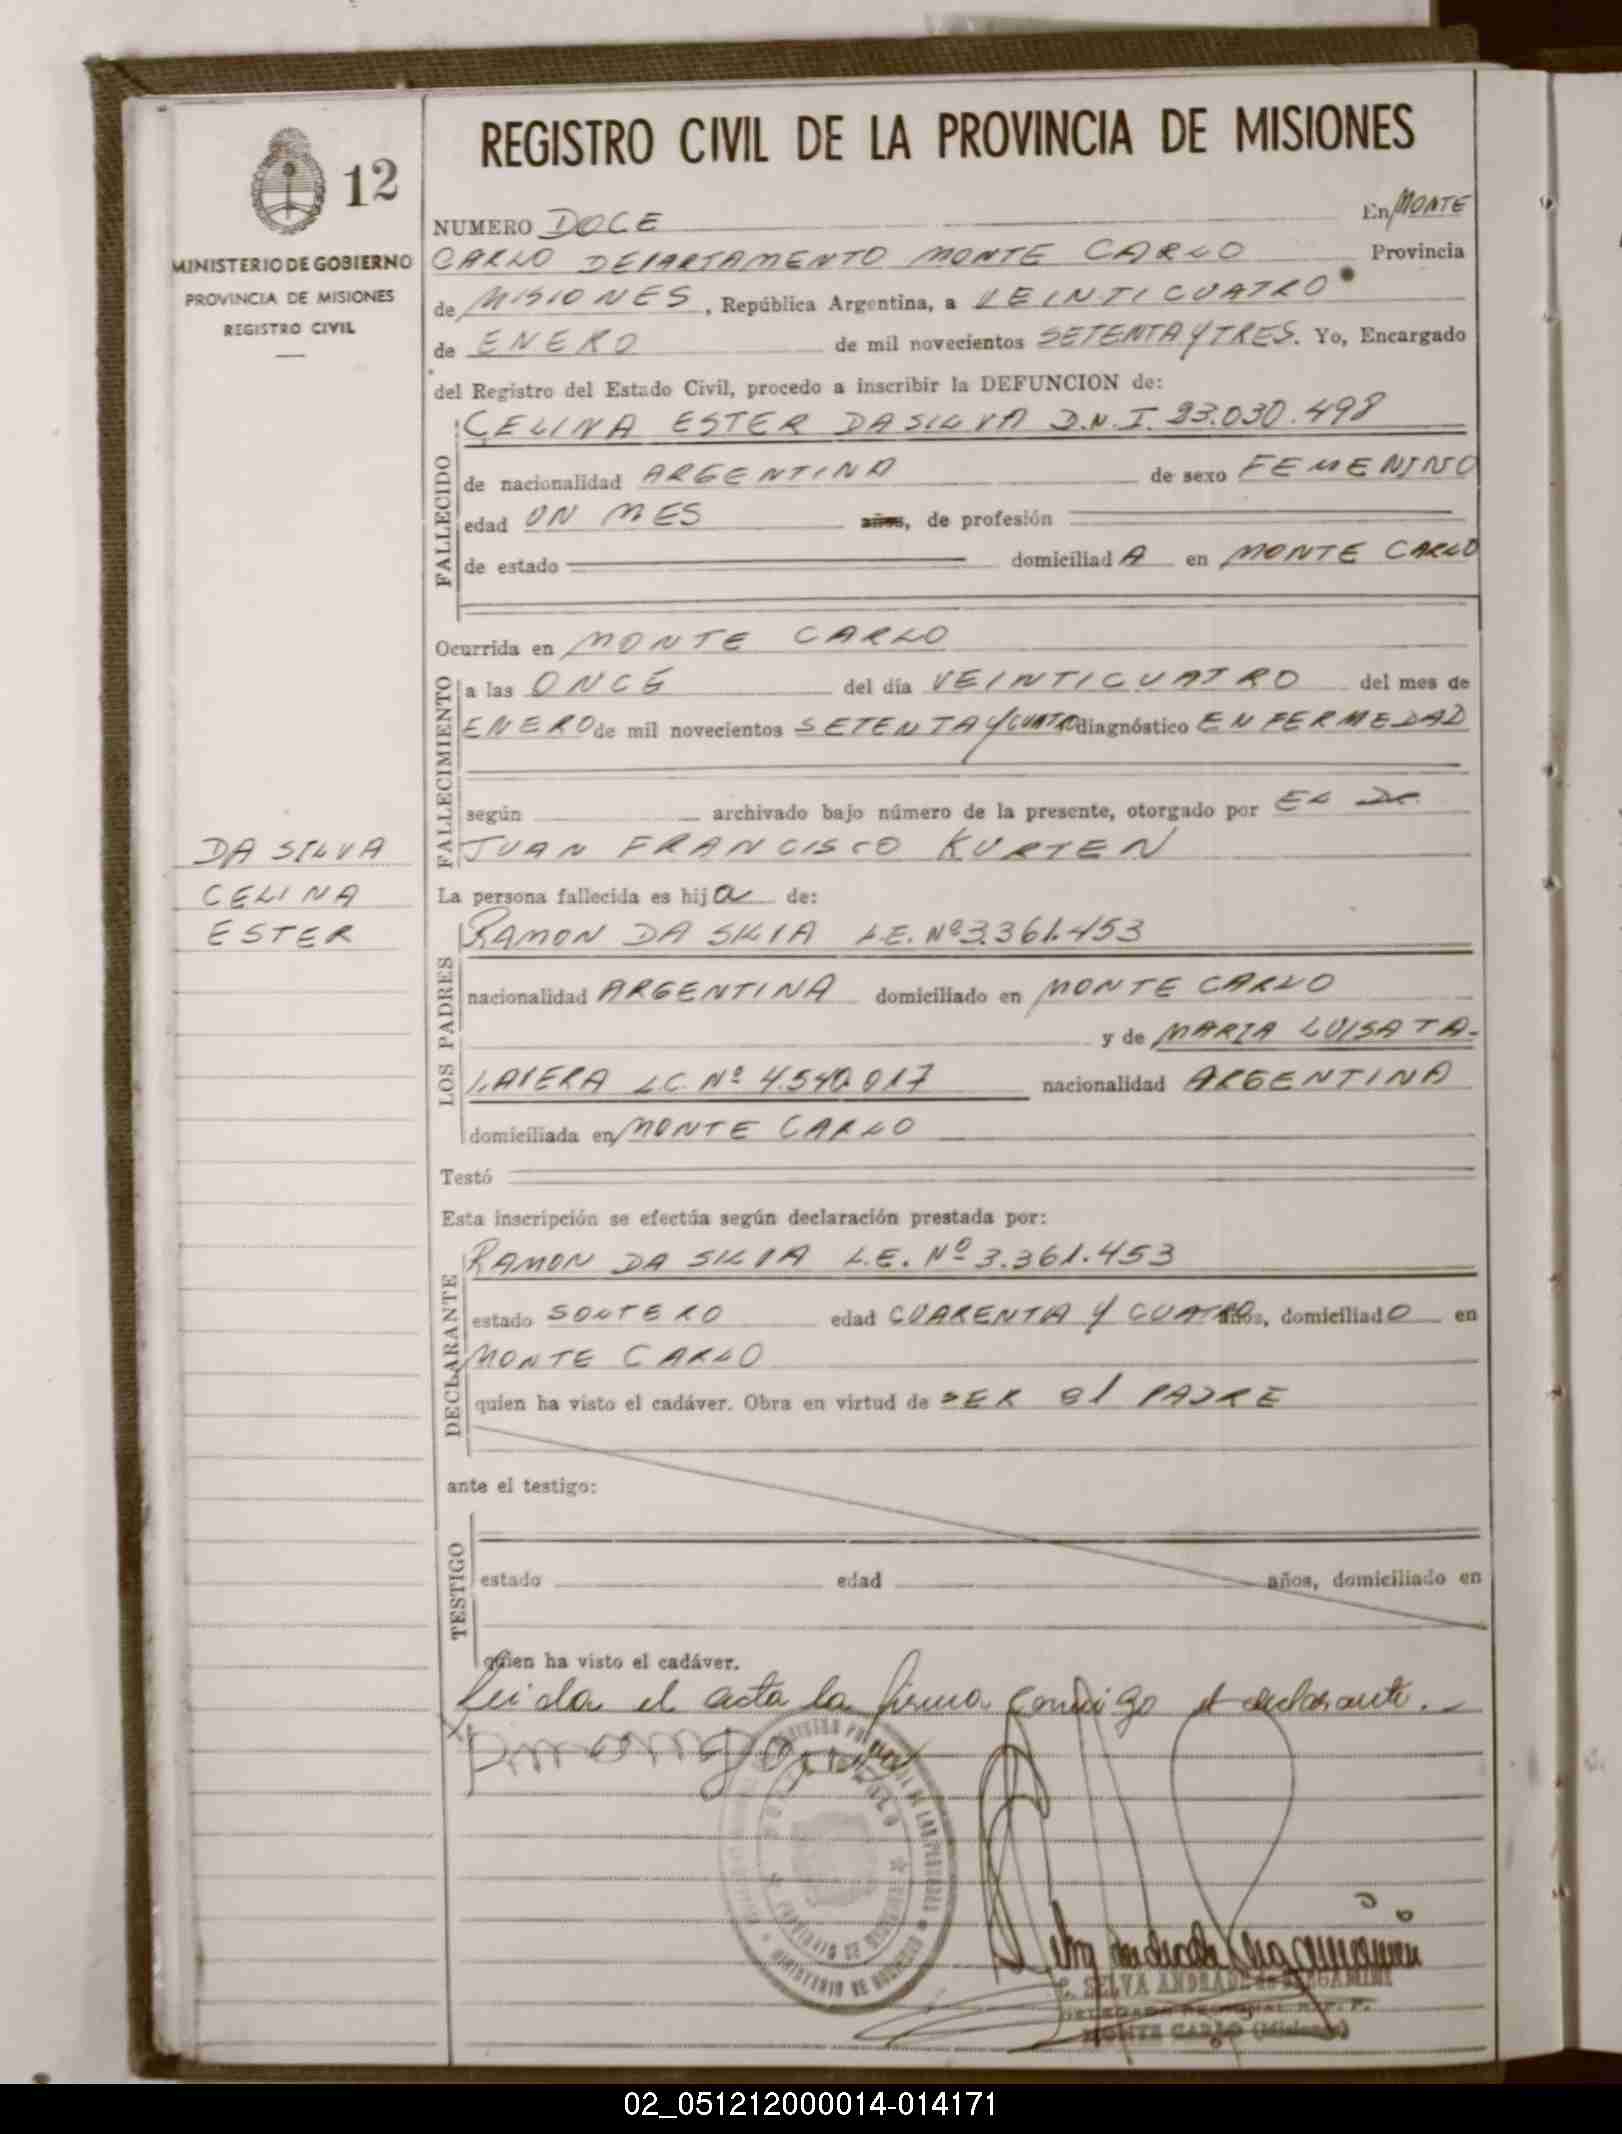 REGISTRO CIVIL DE LA PROVINCIA DE MISIONES
12
MINISTERIO DE GOBIERNO
PROVINCIA DE MISIONES
REGISTRO CIVIL
NUMERO DOCE En MONTE
CARLO DEPARTAMENTO MONTE CARLO Provincia
de MISIONES, República Argentina, a VEINTICUATRO
de ENERO de mil novecientos SETENTA Y TRES. Yo, Encargado
del Registro del Estado Civil, procedo a inscribir la DEFUNCION de:
CELINA ESTER DA SILVA D.N.I. 23.030.498
FALLECIDO
de nacionalidad ARGENTINA de sexo FEMENINO
edad UN MES años, de profesión
de estado domiciliadA en MONTE CARLO
Ocurrida en MONTE CARLO
FALLECIMIENTO
a las ONCE del día VEINTICUATRO del mes de
ENERO de mil novecientos SETENTA Y CUATRO diagnóstico ENFERMEDAD
según archivado bajo número de la presente, otorgado por EL Dr.
JUAN FRANCISCO KURTEN
DA SILVA
CELINA
ESTER
La persona fallecida es hija de:
LOS PADRES
RAMON DA SILVA L.E. Nº 3.361.453
nacionalidad ARGENTINA domiciliado en MONTE CARLO
y de MARIA LUISA TA-
LAVERA LC. Nº 4.540.017 nacionalidad ARGENTINA
domiciliada en MONTE CARLO
Testó
Esta inscripción se efectúa según declaración prestada por:
DECLARANTE
RAMON DA SILVA L.E. Nº 3.361.453
estado SOLTERO edad CUARENTA Y CUATRO años, domiciliadO en
MONTE CARLO
quien ha visto el cadáver. Obra en virtud de SER el PADRE
ante el testigo:
TESTIGO
estado edad años, domiciliado en
quien ha visto el cadáver.
Leida el acta la firma conmigo el declarante.
C. SELVA ANDRADE de BERGAMINI
MONTE CARLO (Misiones)
02_051212000014-014171